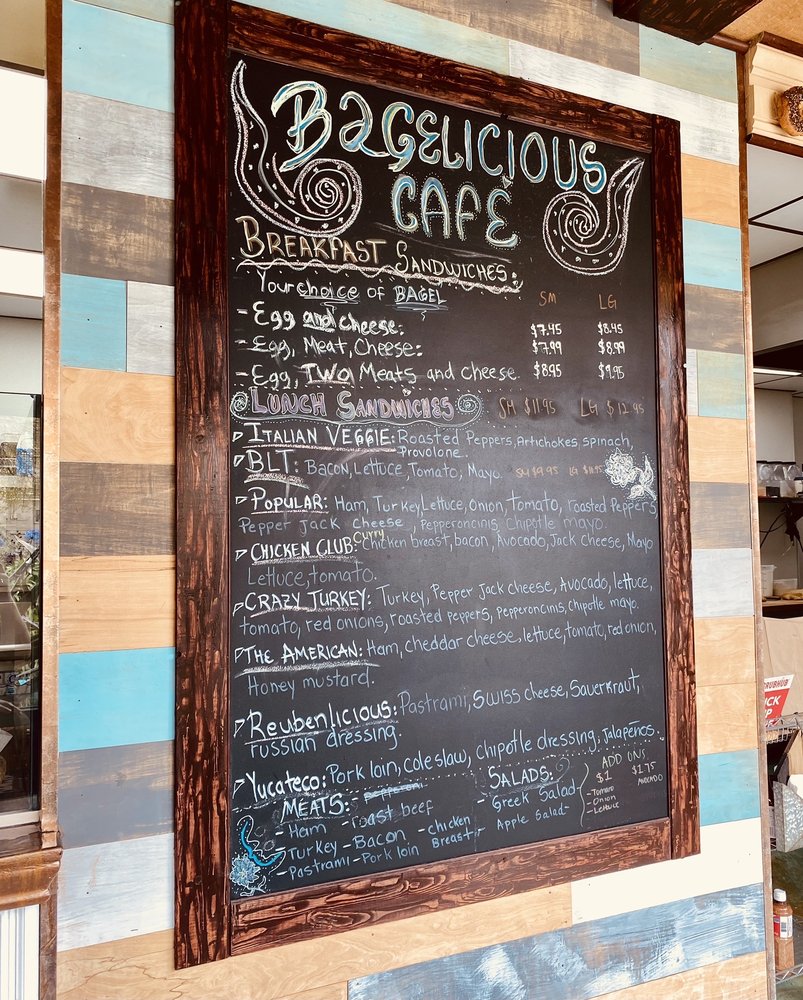 BAGELICIOUS
CAFÉ
BREAKFAST SANDWICHES:
Your choice of BAGEL SM LG
- Egg and cheese: $7.45 $8.45
- Egg, Meat, Cheese: $7.99 $8.99
- Egg, TWO Meats and cheese $8.95 $9.95
LUNCH SANDWICHES SM $11.95 LG $12.95
ITALIAN VEGGIE: Roasted Peppers, Artichokes, spinach,
Provolone.
BLT: Bacon, Lettuce, Tomato, Mayo. SM $9.95 LG $11.95
POPULAR: Ham, Turkey Lettuce, Onion, Tomato, roasted Peppers
Pepper jack cheese, Pepperoncinis, Chipotle mayo.
CHICKEN CLUB: Curry Chicken breast, bacon, Avocado, Jack Cheese, Mayo
Lettuce, tomato.
CRAZY TURKEY: Turkey, Pepper Jack cheese, Avocado, lettuce,
tomato, red onions, roasted peppers, Pepperoncinis, Chipotle mayo.
THE AMERICAN: Ham, cheddar cheese, lettuce, tomato, red onion,
Honey mustard.
Reubenlicious: Pastrami, Swiss cheese, Sauerkraut,
russian dressing.
Yucateco: Pork loin, coleslaw, chipotle dressing, jalapeños.
MEATS:
- Ham - roast beef
- Turkey - Bacon - chicken Breast
- Pastrami - Pork loin
SALADS:
- Greek Salad -
- Apple Salad -
ADD ONS
$1 $1.75
- Tomato AVOCADO
- Onion
- Lettuce
GRUBHUB